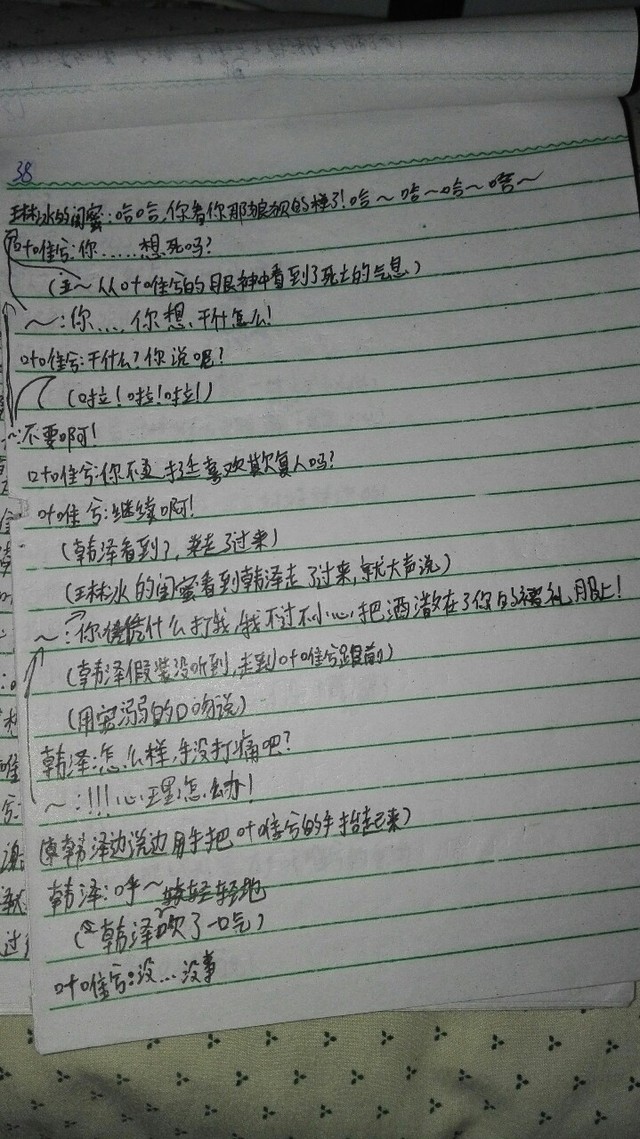 38
王林冰的闺蜜:哈哈,你看你那狼狈的样子!哈～哈～哈～哈～
叶唯兮:你......想死吗?
(王～从叶唯兮的眼神中看到了死亡的气息)
～:你....你想,干什怎么!
叶唯兮:干什么?你说呢?
(啦!啦!啦!)
～:不要啊!
叶唯兮:你不是挺喜欢欺负人吗?
叶唯兮:继续啊!
(韩泽看到了,来走了过来)
(王林冰的闺蜜看到韩泽走了过来,就大声说)
～:你凭什么打我,我不过不小心,把酒泼在了你的礼服上!
(韩泽假装没听到,走到叶唯兮跟前)
(用宠溺的口吻说)
韩泽:怎么样,手没打痛吧?
～:!!!心理怎么办!
(韩泽边说边用手把叶唯兮的手抬起来)
韩泽:呼～轻轻地
(韩泽吹了一口气)
叶唯兮:没...没事